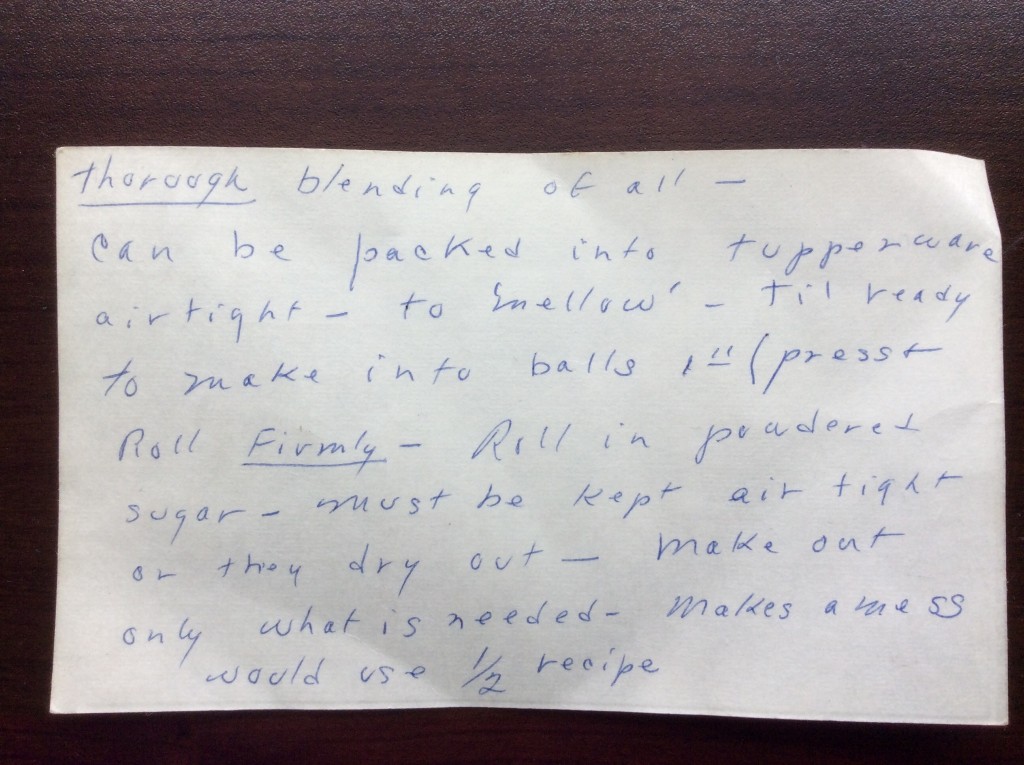 thorough blending of all –
Can be packed into tupperware
airtight – to 'mellow' – Til ready
to make into balls 1" (press +
Roll Firmly – Roll in powdered
sugar – must be kept air tight
or they dry out – Make out
only what is needed – Makes a mess
would use 1/2 recipe